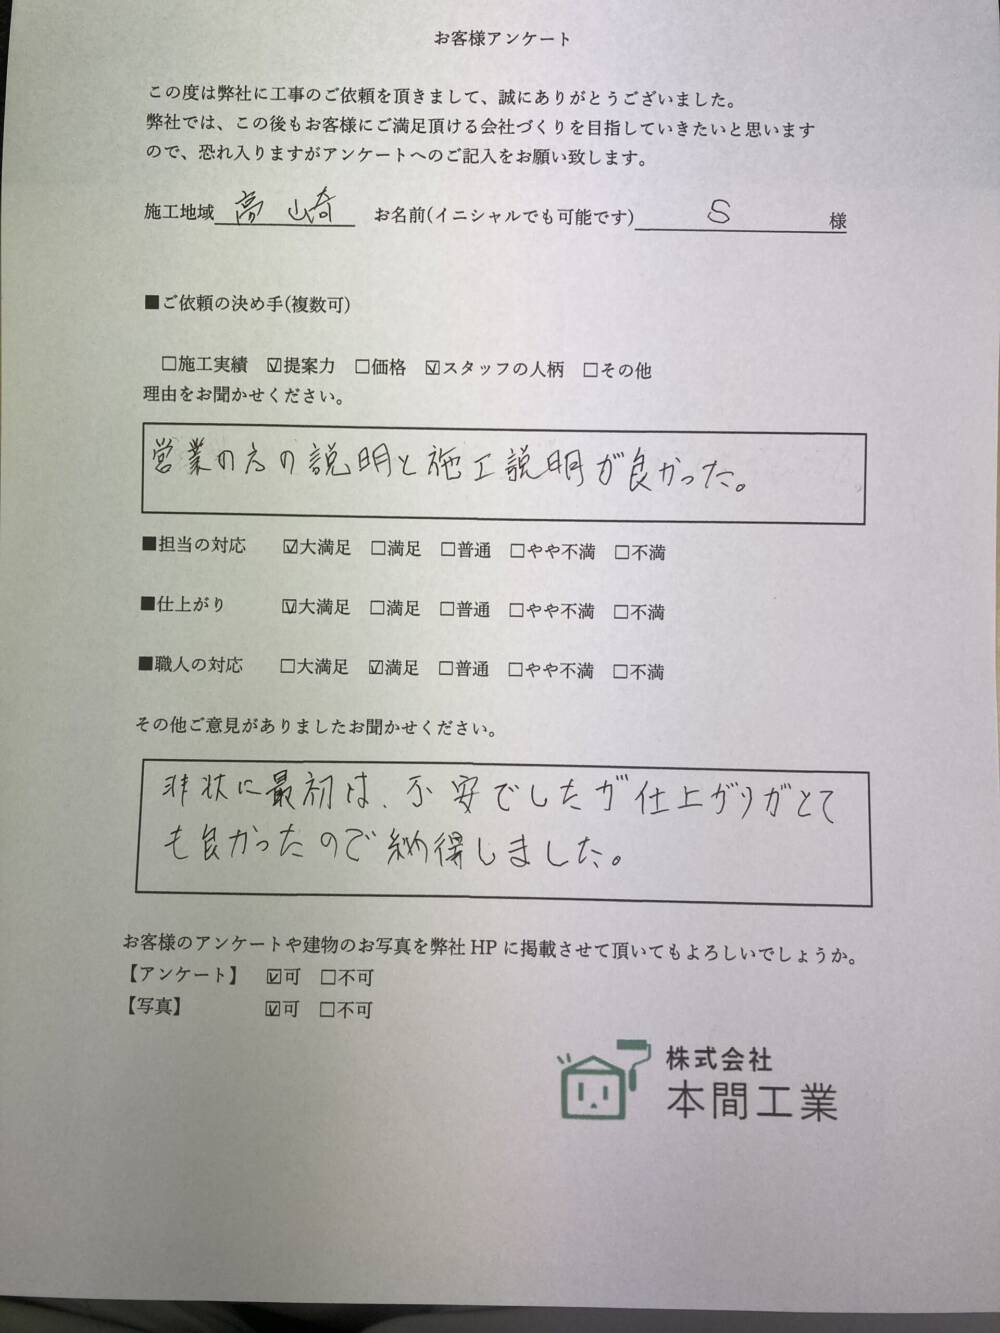 お客様アンケート
この度は弊社に工事のご依頼を頂きまして、誠にありがとうございました。
弊社では、この後もお客様にご満足頂ける会社づくりを目指していきたいと思います
ので、恐れ入りますがアンケートへのご記入をお願い致します。
施工地域 高崎 お名前(イニシャルでも可能です) S 様
■ご依頼の決め手(複数可)
□施工実績 ☑提案力 □価格 ☑スタッフの人柄 □その他
理由をお聞かせください。
営業の方の説明と施工説明が良かった。
■担当の対応 ☑大満足 □満足 □普通 □やや不満 □不満
■仕上がり ☑大満足 □満足 □普通 □やや不満 □不満
■職人の対応 □大満足 ☑満足 □普通 □やや不満 □不満
その他ご意見がありましたお聞かせください。
非状に最初は、不安でしたが仕上がりがとて
も良かったので納得しました。
お客様のアンケートや建物のお写真を弊社 HP に掲載させて頂いてもよろしいでしょうか。
【アンケート】 ☑可 □不可
【写真】 ☑可 □不可
株式会社
本間工業